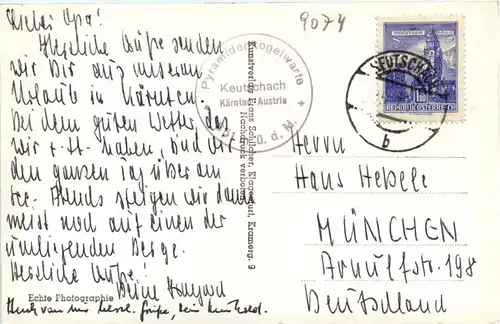 Lieber Opa!
Herzliche Grüße senden
wir Dir aus unserem
Urlaub in Kärnten.
Bei dem guten Wetter, das
wir haben, sind wir
den ganzen Tag über am
See. Abends steigen wir dann
meist noch auf einen der
umliegenden Berge.
Herzliche Grüße!
Deine
Auch von mir herzl. Grüße, dein
Echte Photographie
9074
Pyramidenkogelwarte
Keutschach
Kärnten, Austria
ü. d. M.
Kunstverlag Hans Schilcher, Klagenfurt, Kramerg. 9
Nachdruck verboten
REPUBLIK ÖSTERREICH
KEUTSCHACH
b
Herrn
Hans Hebele
MÜNCHEN
Arnulfstr. 198
Deutschland